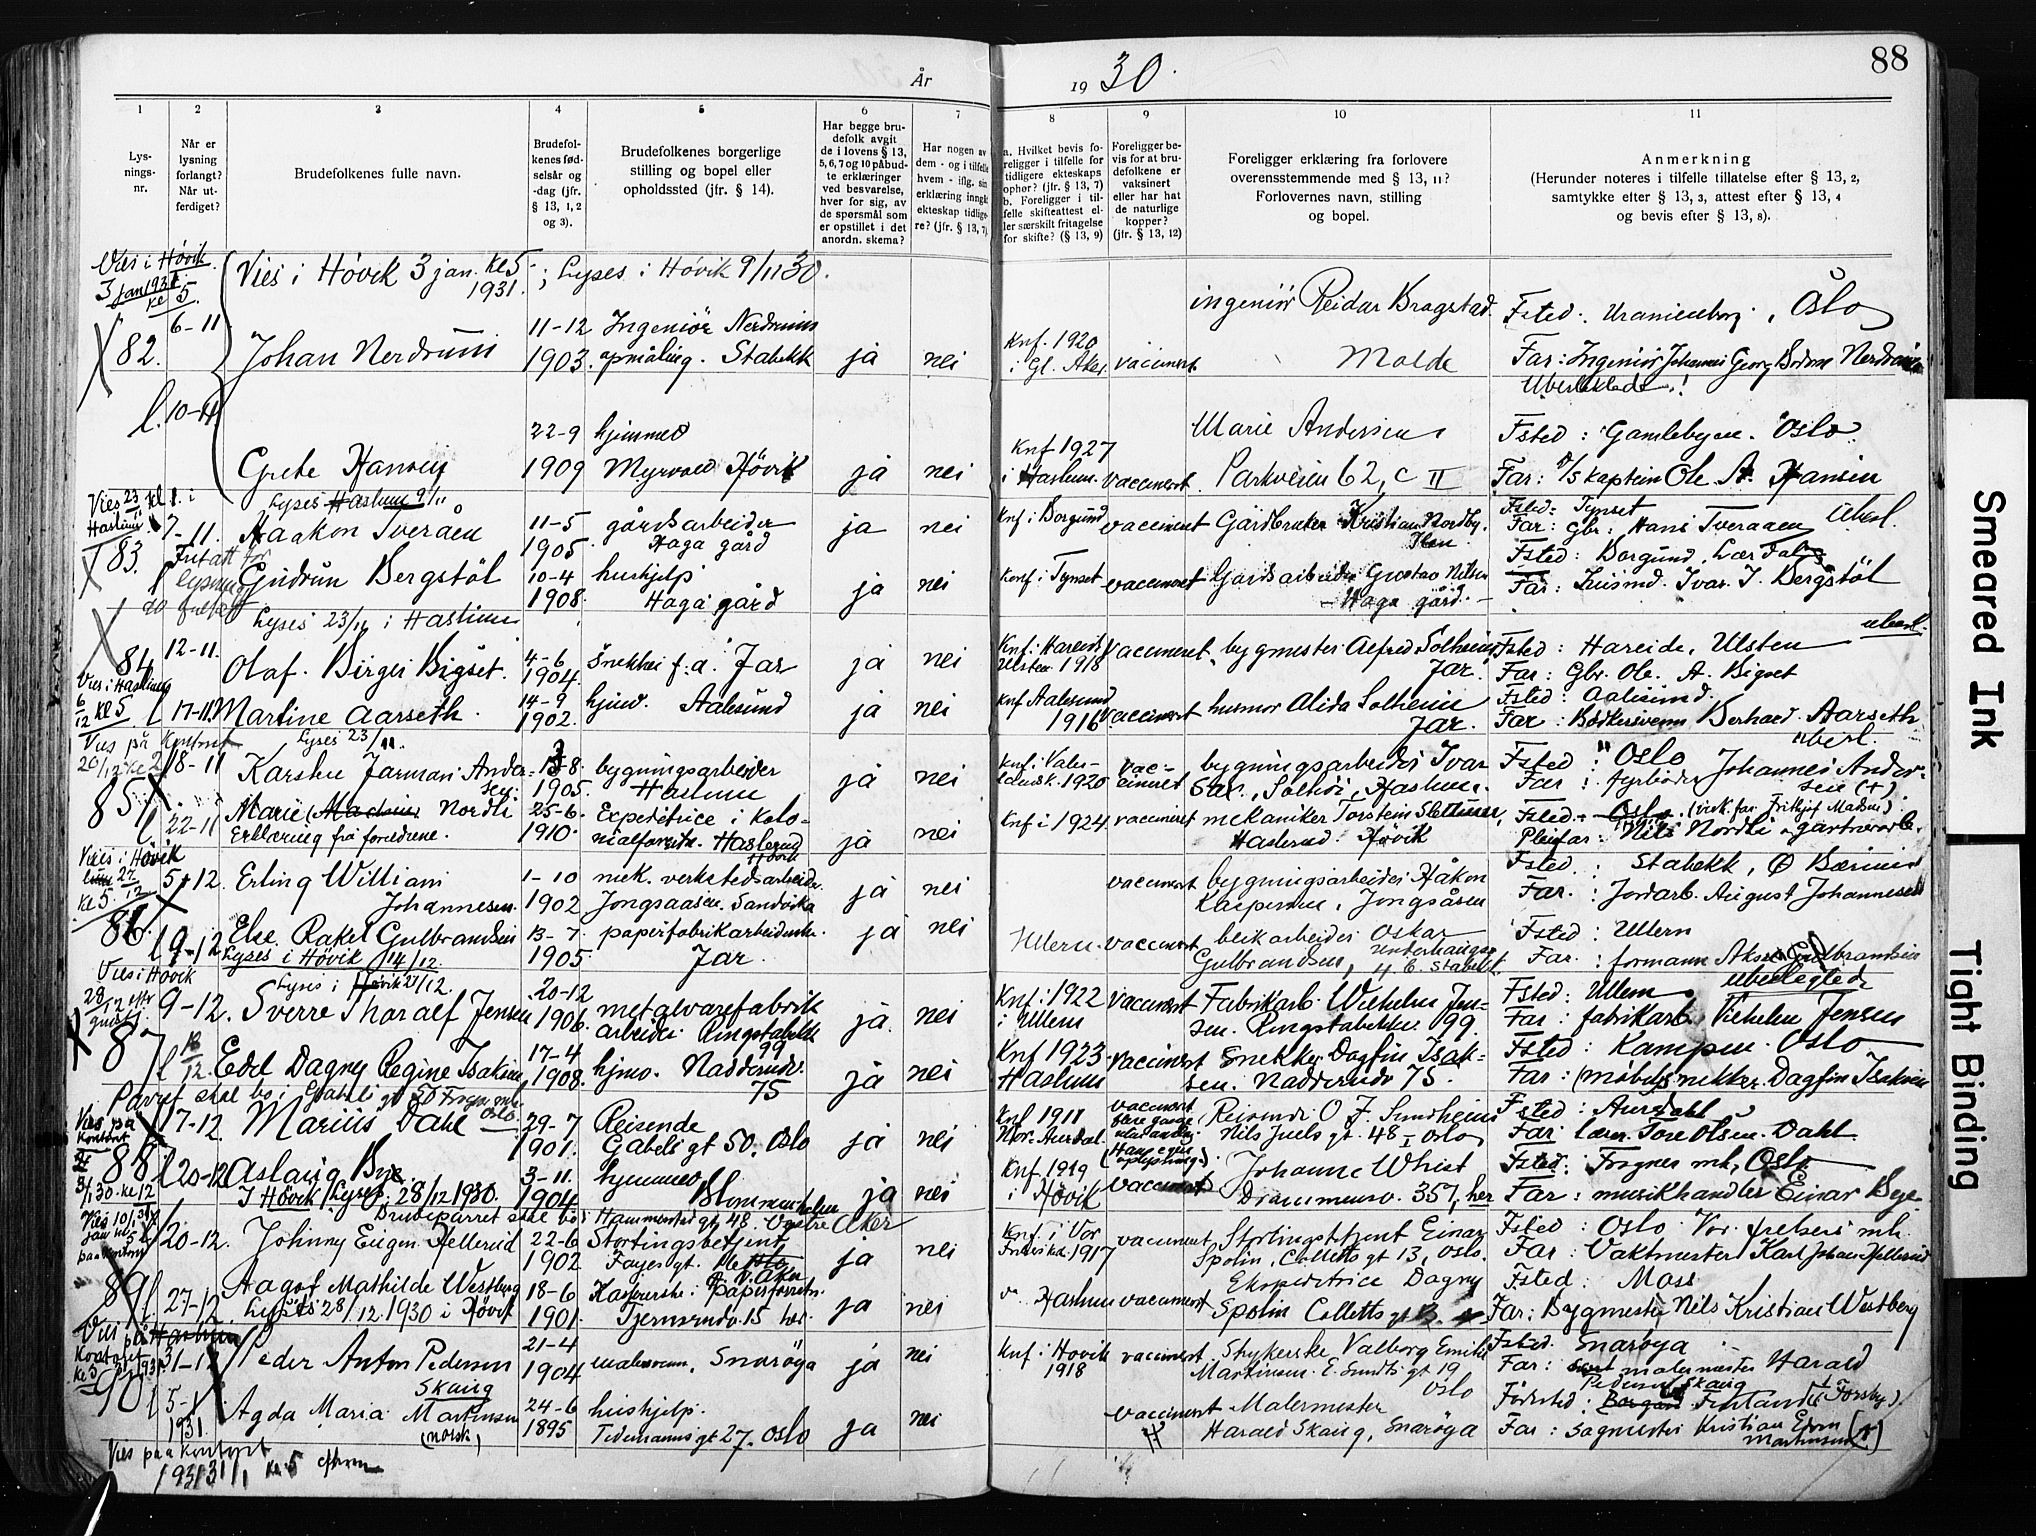 88
År
19 30.
1 2 3 4 5 6 7 8 9 10 11
Lys-
nings-
nr.
Når er
lysning
forlangt?
Når ut-
ferdiget?
Brudefolkenes fulle navn.
Brudefol-
kenes fød-
selsår og
-dag (jfr.
§ 13, 1, 2
og 3).
Brudefolkenes borgerlige
stilling og bopel eller
opholdssted (jfr. § 14).
Har begge bru-
defolk avgit
de i lovens § 13,
5, 6, 7 og 10 påbud-
te erklæringer
ved besvarelse,
hver for sig, av
de spørsmål som
er opstillet i det
anordn. skema?
Har nogen av
dem - og i tilfelle
hvem - iflg. sin
erklæring inngå
ekteskap tidlige-
re? (jfr. § 13, 7)
a. Hvilket bevis fo-
religger i tilfelle for
tidligere ekteskaps
ophør? (jfr. § 13, 7)
b. Foreligger i til-
felle skifteattest el-
ler særskilt fritagelse
for skifte? (§ 13, 9)
Foreligger be-
vis for at bru-
defolkene er
vaksinert
eller har hat
de naturlige
kopper?
(jfr. § 13, 12)
Foreligger erklæring fra forlovere
overensstemmende med § 13, 11?
Forlovernes navn, stilling
og bopel.
Anmerkning
(Herunder noteres i tilfelle tillatelse efter § 13, 2,
samtykke efter § 13, 3, attest efter § 13, 4
og bevis efter § 13, 8).
Vies i Høvik
3 jan 1931
kl 5.
Vies i Høvik 3 jan. kl 5 ; Lyses i Høvik 9/11 30.
1931.
82. 6-11
Johan Nerdrum
11-12
1903.
Ingeniör Nerdrums
opmåling. Stabekk
ja nei
Knf. 1920
i Gl. Aker
vaccinert
ingeniör Reidar Bragstad
Molde
Fsted: Uranienborg, Oslo
Far: Ingeniör Johannes Georg Nerdrum
l. 10-11
Grete Hansen
22-9
1909
hjemme
Myrvold Høvik
ja nei
Knf 1927
i Haslum.
vaccinert
Marie Andersen
Parkveien 62, c II
Fsted: Gamlebyen. Oslo.
Far: Kaptein Ole A. Hansen
Vies 23/11 kl 1. i
Haslum
Lyses Haslum 9/11
83. 7-11.
Haakon Tveråen
11-5
1905.
gårdsarbeider
Haga gård
ja nei
Knf. i Borgund
vaccinert
Gårdbruker Kristian Nordby.
Fsted: Tynset
Far: Gbr. Hans Tveraaen
Fritatt for
lysning
Gudrun Bergstöl
10-4
1908.
hushjelp
Haga gård
ja nei
Konf. i Tynset
vaccinert
Gårdsarbeider Gustav Nilsen
- Haga gård. -
Fsted: Borgund, Lærdal
Far: Ivar J. Bergstöl
Lyses 23/11 i Haslum
84 12-11.
Olaf Birger Bigset.
4-6
1904.
Snekker f.a. Jar
ja nei
Knf. i Hareid
Ulsten 1918
vaccineret
bygmester Alfred Solheim
Jar.
Fsted: Hareide, Ulsten
Far: Gbr. Ole. A. Bigset
Vies i Haslum
6/12 kl 5
l 17-11.
Martine Aarseth.
14-9
1902.
hjem. Aalesund
ja nei
Knf Aalesund
1916
vaccinert
husmor Alida Solheim
Jar.
Fsted: Aalesund.
Far: Bödkersvenn Aarseth
Vies på Kontoret
20/12 kl 2
Lyses 23/11.
85 18-11
Karsten Jarman Ander-
sen
1905.
bygningsarbeider
Haslum
ja nei
Knf. i Våler-
1920
vac-
cineret
bygningsarbeider Ivar
Haslum.
Fsted: Oslo
Far: fyrböter Johannes Ander-
sen (+)
l 22-11
Marie (Madsen) Nordli
Erklæring fra foreldrene.
25-6
1910.
Expeditrice i kolo-
nialforretn. Haslerud
Høvik
ja nei
Knf i 1924
vaccineret
mekaniker Torstein Slettum
Haslerud. Høvik
Fsted: Oslo. (virk. far Frithjof Madsen).
Pleiefar: Nils Nordli gartnerarb.
Vies i Høvik
27/12
kl 5.
86. 5-12.
Erling William
Johannesen.
1-10
1902
mek. verkstedsarbeider
Jongsaasen. Sandvika
ja nei
vaccinert
bygningsarbeider Håkon
Kaspersen, Jongsåsen
Fsted: Stabekk, Ø Bærum
Far: Jordarb. August Johannesen
l 9-12
Else Rakel Gulbrandsen
Lyses i Høvik 14/12.
13-7.
1905.
papirfabrikarbeiderske
Jar.
ja nei
Ullern.
vaccinert
blikarbeider Oskar
Gulbrandsen,
Stabekk.
Fsted: Ullern
Far: formann Aksel Gulbrandsen
Vies i Høvik
28/12 eftr
gudstj.
Lyses i Høvik 21/12.
87 9-12.
Sverre Thoralf Jensen
20-12
1906.
metalvarefabrik
arbeider Ringstabekk
99
ja. nei
Knf: 1922
i Ullern
vaccinert
Fabrikarb. Wilhelm Jen-
sen. Ringstabekkv. 99.
Fsted: Ullern
Far: fabrikarb. Vilhelm Jensen
l 16/12.
Edel Dagny Regine Isaksen
17-4
1908.
hjem. Nadderudv.
75
ja nei
Knf 1923
Haslum
vaccinert
Snekker Dagfin Isak-
sen. Nadderudv 75.
Fsted: Kampen. Oslo
Far: (møbel)snekker. Dagfin Isaksen
Paret skal bo i Gabels gt 50 Frogner mh.
Oslo
Vies paa
Kontoret
3/1 30. kl 12
88 17-12
Marius Dahl
29-7
1901.
Reisende
Gabels gt 50. Oslo
ja nei
Knf 1918
Nor. Aurdal.
vaccinert
Reisende O. J. Sundheim
Nils Juels gt. 48 I Oslo
Fsted: Aurdahl
Far: lærer. Tore Olsen. Dahl.
l 20-12
Aslaug Bye
I Høvik Lyses 28/12 1930.
3-11.
1904
hjemme
Blommenholm
ja nei
Knf. 1919
i Høvik
vaccinert
Johanne Whist
Drammensv. 357, her
Fsted: Frogner mh, Oslo.
Far: musikhandler Einar Bye
Brudeparret skal bo i Hammerstad gt. 48. Vestre Aker
Vies 10/1 31
paa kontoret
89 20-12.
Johnny Eugen Hellerud
22-6
1902
Stortingsbetjent
Fayes gt.
V. Aker
ja nei
Knf. i Vor
Frelsers k. 1917
vaccinert
Stortingsbetjent Einar
Spolin, Colletts gt 13, Oslo.
Fsted: Oslo. Vor frelsers mh.
Far: Vaktmester Karl Johan Hellerud
l 27-12
Aagot Mathilde Westberg
Lyses 28/12. 1930 i Høvik
18-6
1901.
Kassererske i papirforretn.
Tjernsrudv. 15 her.
ja nei
Haslum
vaccinert
Ekspeditrice Dagny
Spolin Colletts gt 13.
Fsted: Moss
Far: Bygmester Nils Kristian Westberg
Vies på Haslum
Kontoret
90 31-12
Peder Anton Pedersen
Skaug
21-4
1904
malersvenn. Snarøya
ja nei
Knf. i Høvik
1918
vaccinert
Strykerske Valborg Emilie
Martinsen. E. Sundts gt 19
Oslo
Fsted: Snarøya
Far: malermester Harald
Pedersen Skaug
l 5-1
1931.
Agda Maria Martinsen
(norsk)
24-6
1895
hushjelp.
Tidemanns gt 27. Oslo
ja nei
vaccinert
Malermester
Harald Skaug, Snarøya
Fødested: Finland (Forsby).
Far: Sagmester Kristian Edvin
Martinsen (+)
Vies paa kontoret
1931 31/1 kl. 5 efterm
Smeared Ink
Tight Binding